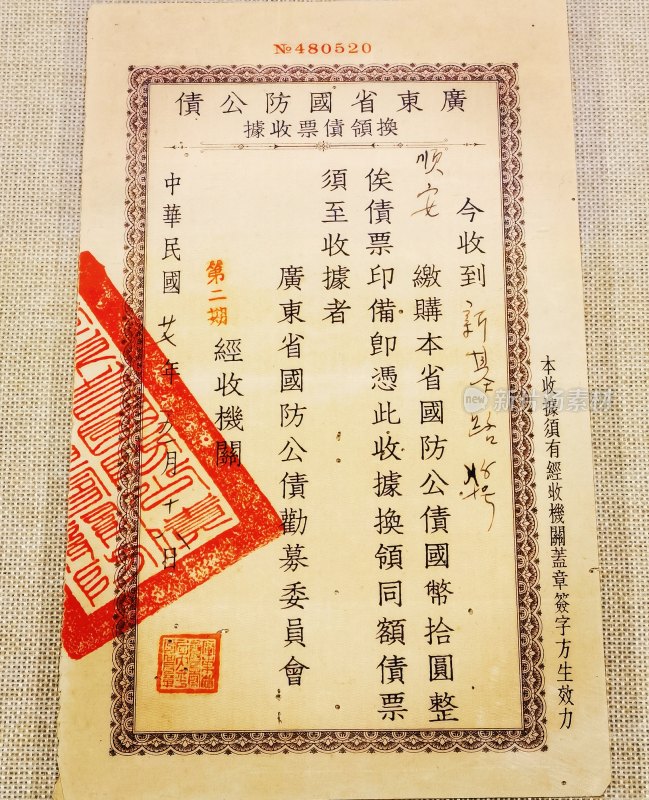 №480520
廣東省國防公債
換領債票收據
今收到新基路
順安
繳購本省國防公債國幣拾圓整
俟債票印備卽憑此收據換領同額債票
須至收據者
廣東省國防公債勸募委員會
第二期
經收機關
中華民國廿七年五月十八日
本收據須有經收機關蓋章簽字方生效力
新片场素材